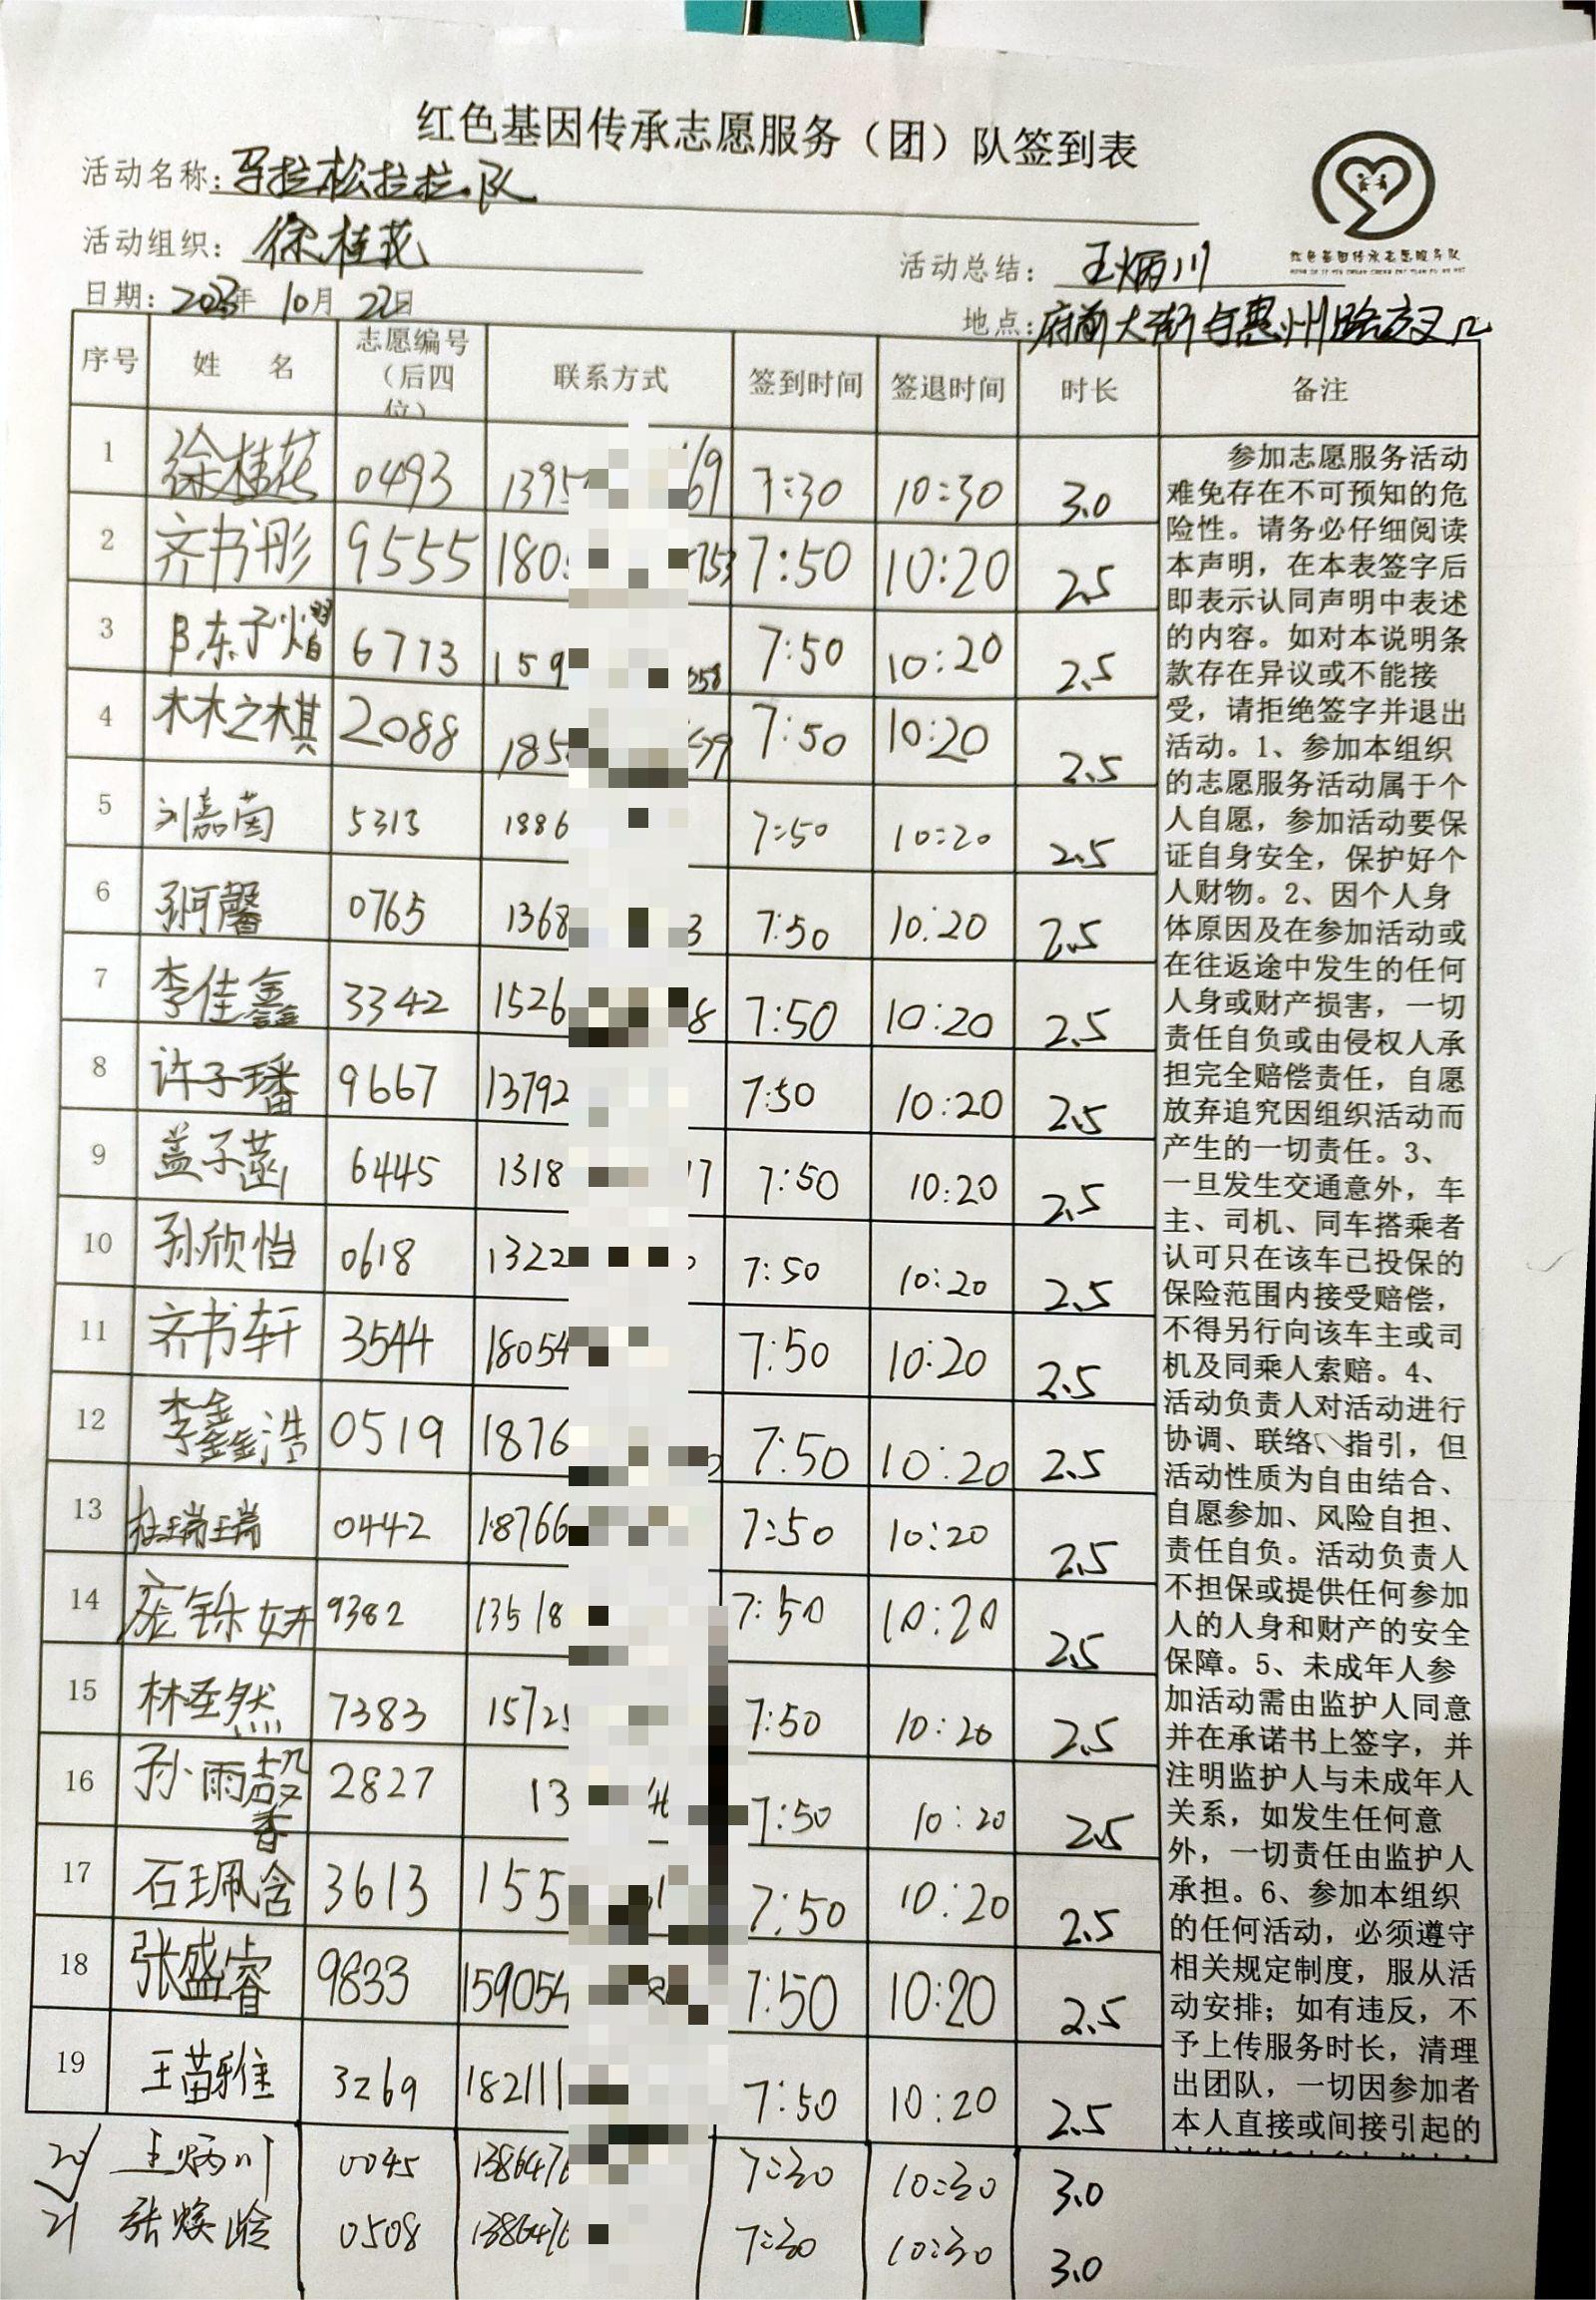 红色基因传承志愿服务（团）队签到表
活动名称：马拉松拉拉队
活动组织：徐桂花
活动总结：王炳川
红色基因传承志愿服务队
日期：2023年 10月 22日
地点：府前大街与惠州路交叉口
序号 姓 名 志愿编号（后四位） 联系方式 签到时间 签退时间 时长 备注
1 徐桂花 0493 1395 69 7:30 10:30 3.0
2 齐书彤 9555 180 753 7:50 10:20 2.5
3 陈子熠 6773 159 358 7:50 10:20 2.5
4 林之棋 2088 185 79 7:50 10:20 2.5
5 刘嘉茵 5313 1886 7:50 10:20 2.5
6 孙柯馨 0765 1368 3 7:50 10:20 2.5
7 李佳鑫 3342 1526 8 7:50 10:20 2.5
8 许子璠 9667 13792 7:50 10:20 2.5
9 盖子菡 6445 1318 17 7:50 10:20 2.5
10 孙欣怡 0618 1322 7:50 10:20 2.5
11 齐书轩 3544 18054 7:50 10:20 2.5
12 李鑫浩 0519 1876 7:50 10:20 2.5
13 杜瑞瑞 0442 18766 7:50 10:20 2.5
14 铄妍 9382 13518 7:50 10:20 2.5
15 林圣然 7383 1572 7:50 10:20 2.5
16 孙雨馨 2827 13 7:50 10:20 2.5
17 石珮含 3613 155 7:50 10:20 2.5
18 张盛睿 9833 159054 7:50 10:20 2.5
19 王苗雅 3269 182111 7:50 10:20 2.5
20 王炳川 0045 1386476 7:30 10:30 3.0
21 张焕玲 0508 1386476 7:30 10:30 3.0
参加志愿服务活动
难免存在不可预知的危
险性。请务必仔细阅读
本声明，在本表签字后
即表示认同声明中表述
的内容。如对本说明条
款存在异议或不能接
受，请拒绝签字并退出
活动。1、参加本组织
的志愿服务活动属于个
人自愿，参加活动要保
证自身安全，保护好个
人财物。2、因个人身
体原因及在参加活动或
在往返途中发生的任何
人身或财产损害，一切
责任自负或由侵权人承
担完全赔偿责任，自愿
放弃追究因组织活动而
产生的一切责任。3、
一旦发生交通意外，车
主、司机、同车搭乘者
认可只在该车已投保的
保险范围内接受赔偿，
不得另行向该车主或司
机及同乘人索赔。4、
活动负责人对活动进行
协调、联络、指引，但
活动性质为自由结合、
自愿参加、风险自担、
责任自负。活动负责人
不担保或提供任何参加
人的人身和财产的安全
保障。5、未成年人参
加活动需由监护人同意
并在承诺书上签字，并
注明监护人与未成年人
关系，如发生任何意
外，一切责任由监护人
承担。6、参加本组织
的任何活动，必须遵守
相关规定制度，服从活
动安排；如有违反，不
予上传服务时长，清理
出团队，一切因参加者
本人直接或间接引起的